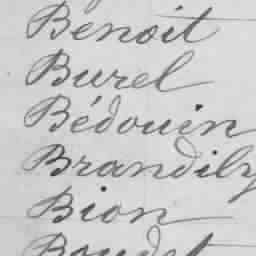 Benoit
Burel
Bédouin
Brandily
Bion
Boudet